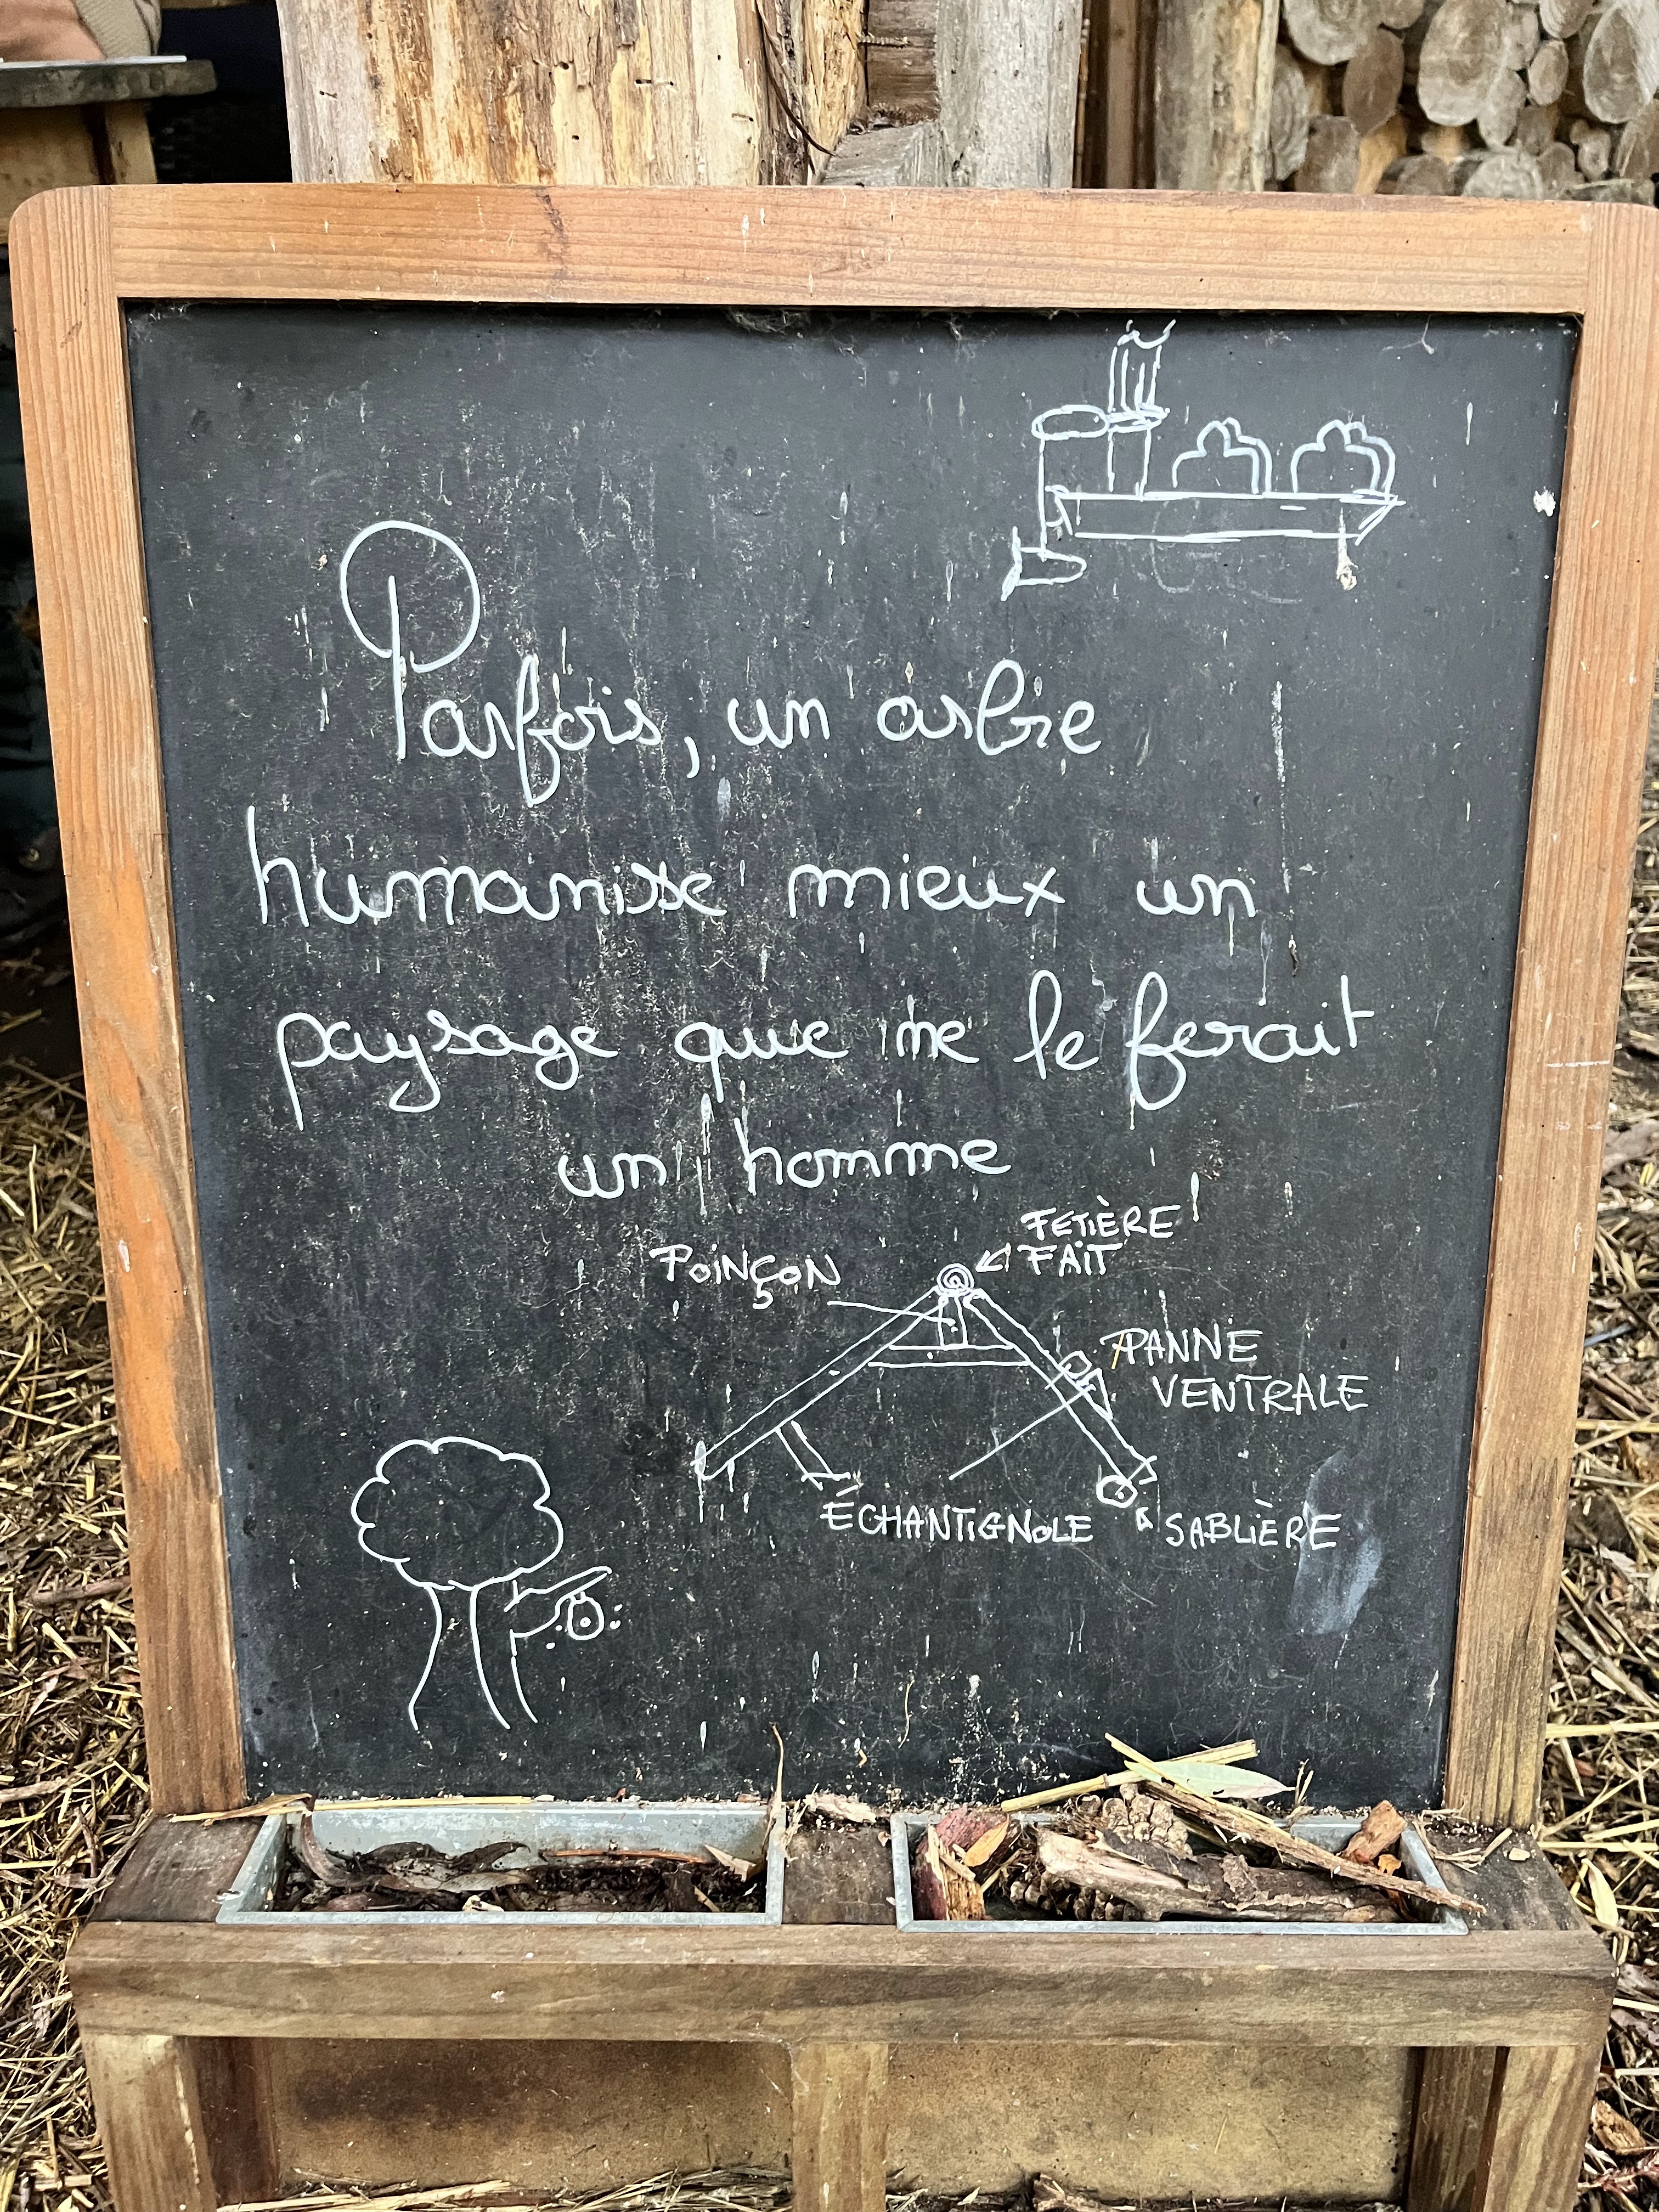 Parfois, un arbre
humanise mieux un
paysage que ne le ferait
un homme
POINÇON
FETIÈRE
FAIT
PANNE
VENTRALE
ÉCHANTIGNOLE
SABLIÈRE